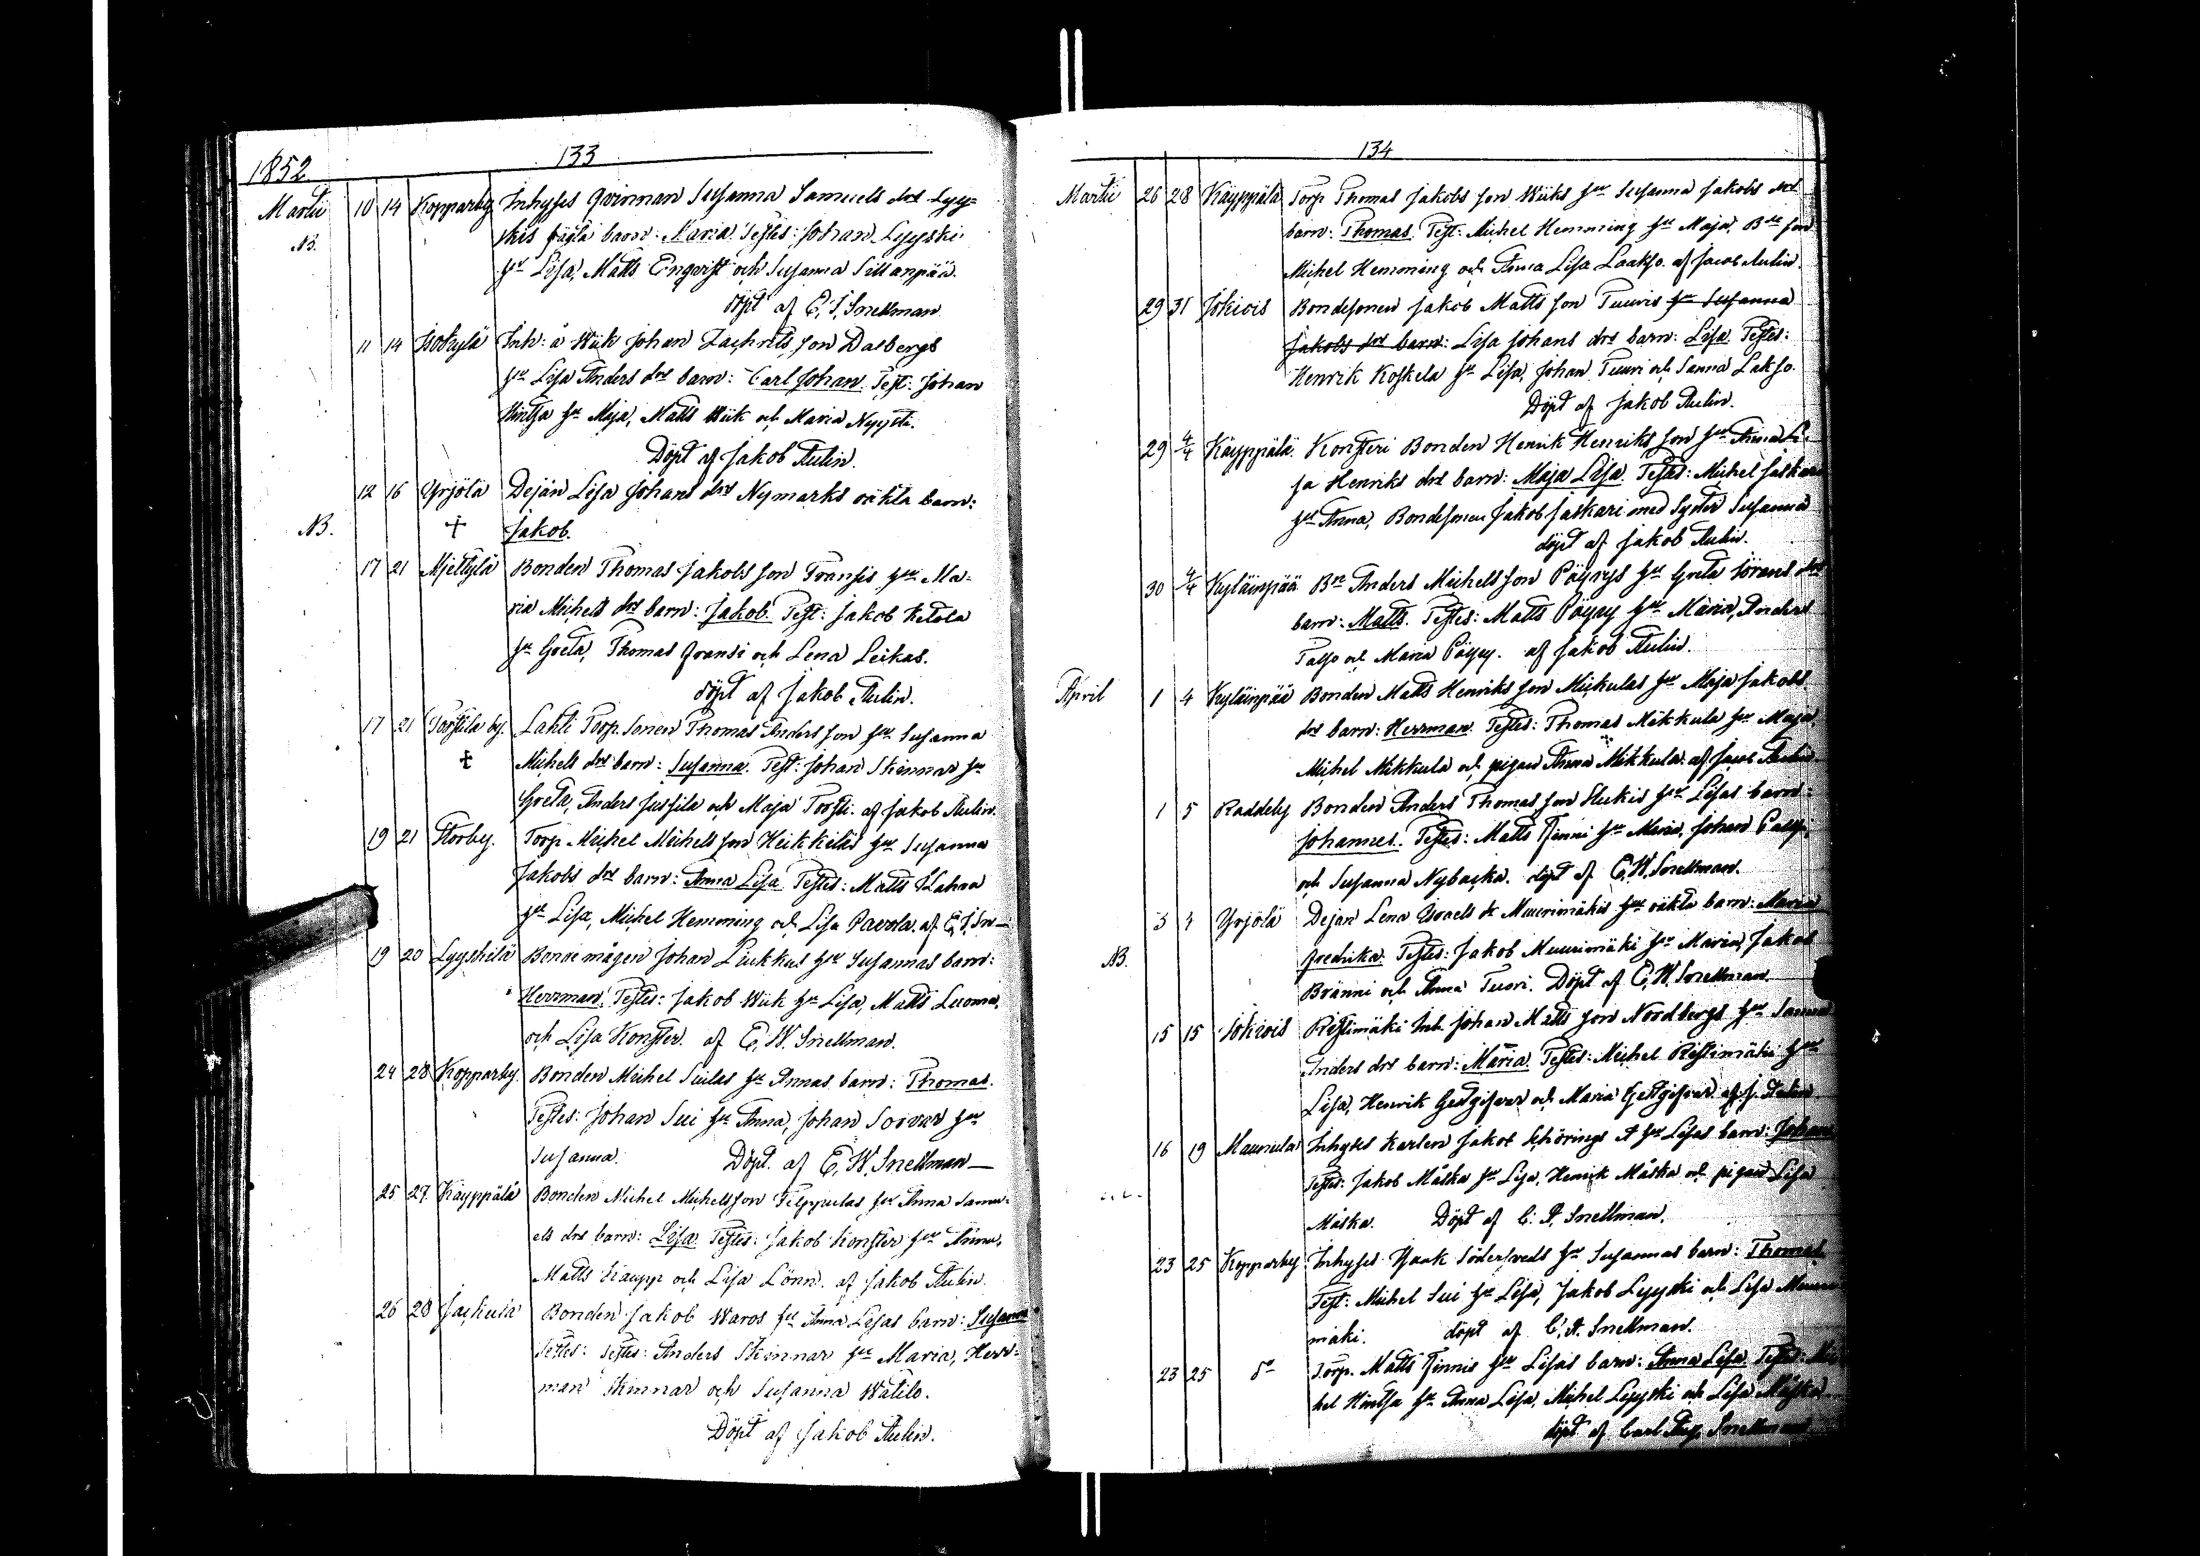 133
1852
Martii 10 14 Kopparby Inhyses qvinnan Susanna Samuels dr Lyy=
NB. skis oägta barn: Maria. Testes: Johan Lyyski
hu Lisa, Matts Enqvist och Susanna Sillanpää.
döpt af C. J. Snellman
11 14 Isokylä Inh: å Wiik Johan Zachrits son Dalbergs
hu Lisa Anders drs barn: Carl Johan. Test: Johan
Hintsa hu Maja, Matts Wiik och Maria Nyysti.
Döpt af Jakob Aulin.
12 16 Yrjölä Dejan Lisa Johans drs Nymarks oäkta barn:
NB. † Jakob.
17 21 Mjettylä Bonden Thomas Jakobs son Fransis hu Ma-
ria Michels drs barn: Jakob. Test: Jakob Ketola
hu Greta, Thomas Fransi och Lena Leikas.
döpt af Jakob Aulin.
17 21 Torstila by. Lahti Torp. Sonen Thomas Anders son hu Susanna
† Michels drs barn: Susanna. Test: Johan Skinnar hu
Greta, Anders Jussila och Maja Torsti. af Jakob Aulin.
19 21 Storby. Torp Michel Michels son Heikkiläs hu Susanna
Jakobs drs barn: Anna Lisa. Testes: Matts
hu Lisa, Michel Hemming och Lisa Pavola. af
19 20 Lyyskilä Bonde mågen Johan Liukkus hu Susannas barn:
Herrman. Testes: Jakob Wiik hu Lisa, Matts Luoma,
och Lisa Konster. af C. W. Snellman.
24 28 Kopparby. Bonden Michel Suilas hu Annas barn: Thomas.
Testes: Johan Sui hu Anna, Johan Sorvar hu
Susanna. Döpt. af C. W. Snellman
25 27. Käyppälä Bonden Michel Michelsson Filppulas hu Anna Samu-
els drs barn: Lisa. Testes: Jakob Konster hu Anna,
Matts Kaupp och Lisa Lönn. af Jakob Aulin.
26 28 Jackula Bonden Jakob Waros hu Anna Lisas barn: Susanna
Testes: Testes: Anders Skinnar hu Maria, Herr-
man Skinnar och Susanna Watilo.
Döpt af Jakob Aulin.
134
Martii 26 28 Käyppälä Torp Thomas Jakobs son Wiiks hu Susanna Jakobs drs
barn: Thomas. Test: Michel Hemming hu Maja, Bde son
Michel Hemming och Anna Lisa Laakso. af Jacob Aulin.
29 31 Jokiois Bondesonen Jakob Matts son Tuuris hu Susanna
Jakobs drs barn: Lisa Johans drs barn: Lisa. Testes:
Henrik Koskela hu Lisa, Johan Tuuri och Sanna Lakso.
Döpt af Jakob Aulin.
29 4/4 Käyppälä. Konsteri Bonden Henrik Henriks son hu Anna Li-
sa Henriks drs barn: Maja Lisa. Testes: Michel Jaskari
hu Anna, Bondesonen Jakob Jaskari med Syster Susanna
döpt af Jakob Aulin.
30 4/4 Kyläinpää Bde Anders Michels son Pöyrys hu Greta Görans drs
barn: Matts. Testes: Matts Pöyry hu Maria, Anders
Talso och Maria Pöyry. af Jakob Aulin.
April 1 4 Kyläinpää Bonden Matts Henriks son Mickulas hu Maja Jakobs
drs barn: Herrman. Testes: Thomas Mikkula hu Maja,
Michel Mikkula och pigan Anna Mikkula. af Jacob Aulin
1 5 Raddeby Bonden Anders Thomas son hu Lisas barn:
Johannes. Testes: Matts Finni hu Maria, Johan
och Susanna Nybacka. döpt af C. W. Snellman.
3 Yrjölä Dejan Lena Israels dr Muurimäkis oäkta barn: Maria
NB. Fredrika. Testes: Jakob Muurimäki hu Maria, Jakob
Bränni och Anna Tuori. Döpt af C. W. Snellman.
15 15 Jokiois Ristimäki Inh. Johan Matts son Nordbergs hu Sanna
Anders drs barn: Maria. Testes: Michel Ristimäki hu
Lisa, Henrik Gestgifvar och Maria Gestgifvar. af J. Aulin.
16 19 Maunula Inhyses Karlen Jakob hu Lisas barn: Johan
Testes: Jakob Måska hu Lisa, Henrik Måska och pigan Lisa
Måska. Döpt af C. A. Snellman.
23 25 Kopparby Inhyses Isaak Södersveds hu Susannas barn: Thomas
Test: Michel Sui hu Lisa, Jakob Lyyski och Lisa
mäki. döpt af C. A. Snellman.
23 25 do Torp. Matts Finnis hu Lisas barn: Anna Lisa. Testes: Mi-
hel Hintsa hu Anna Lisa, Michel Lyyski och Lisa Måska
döpt af Carl Aug. Snellman